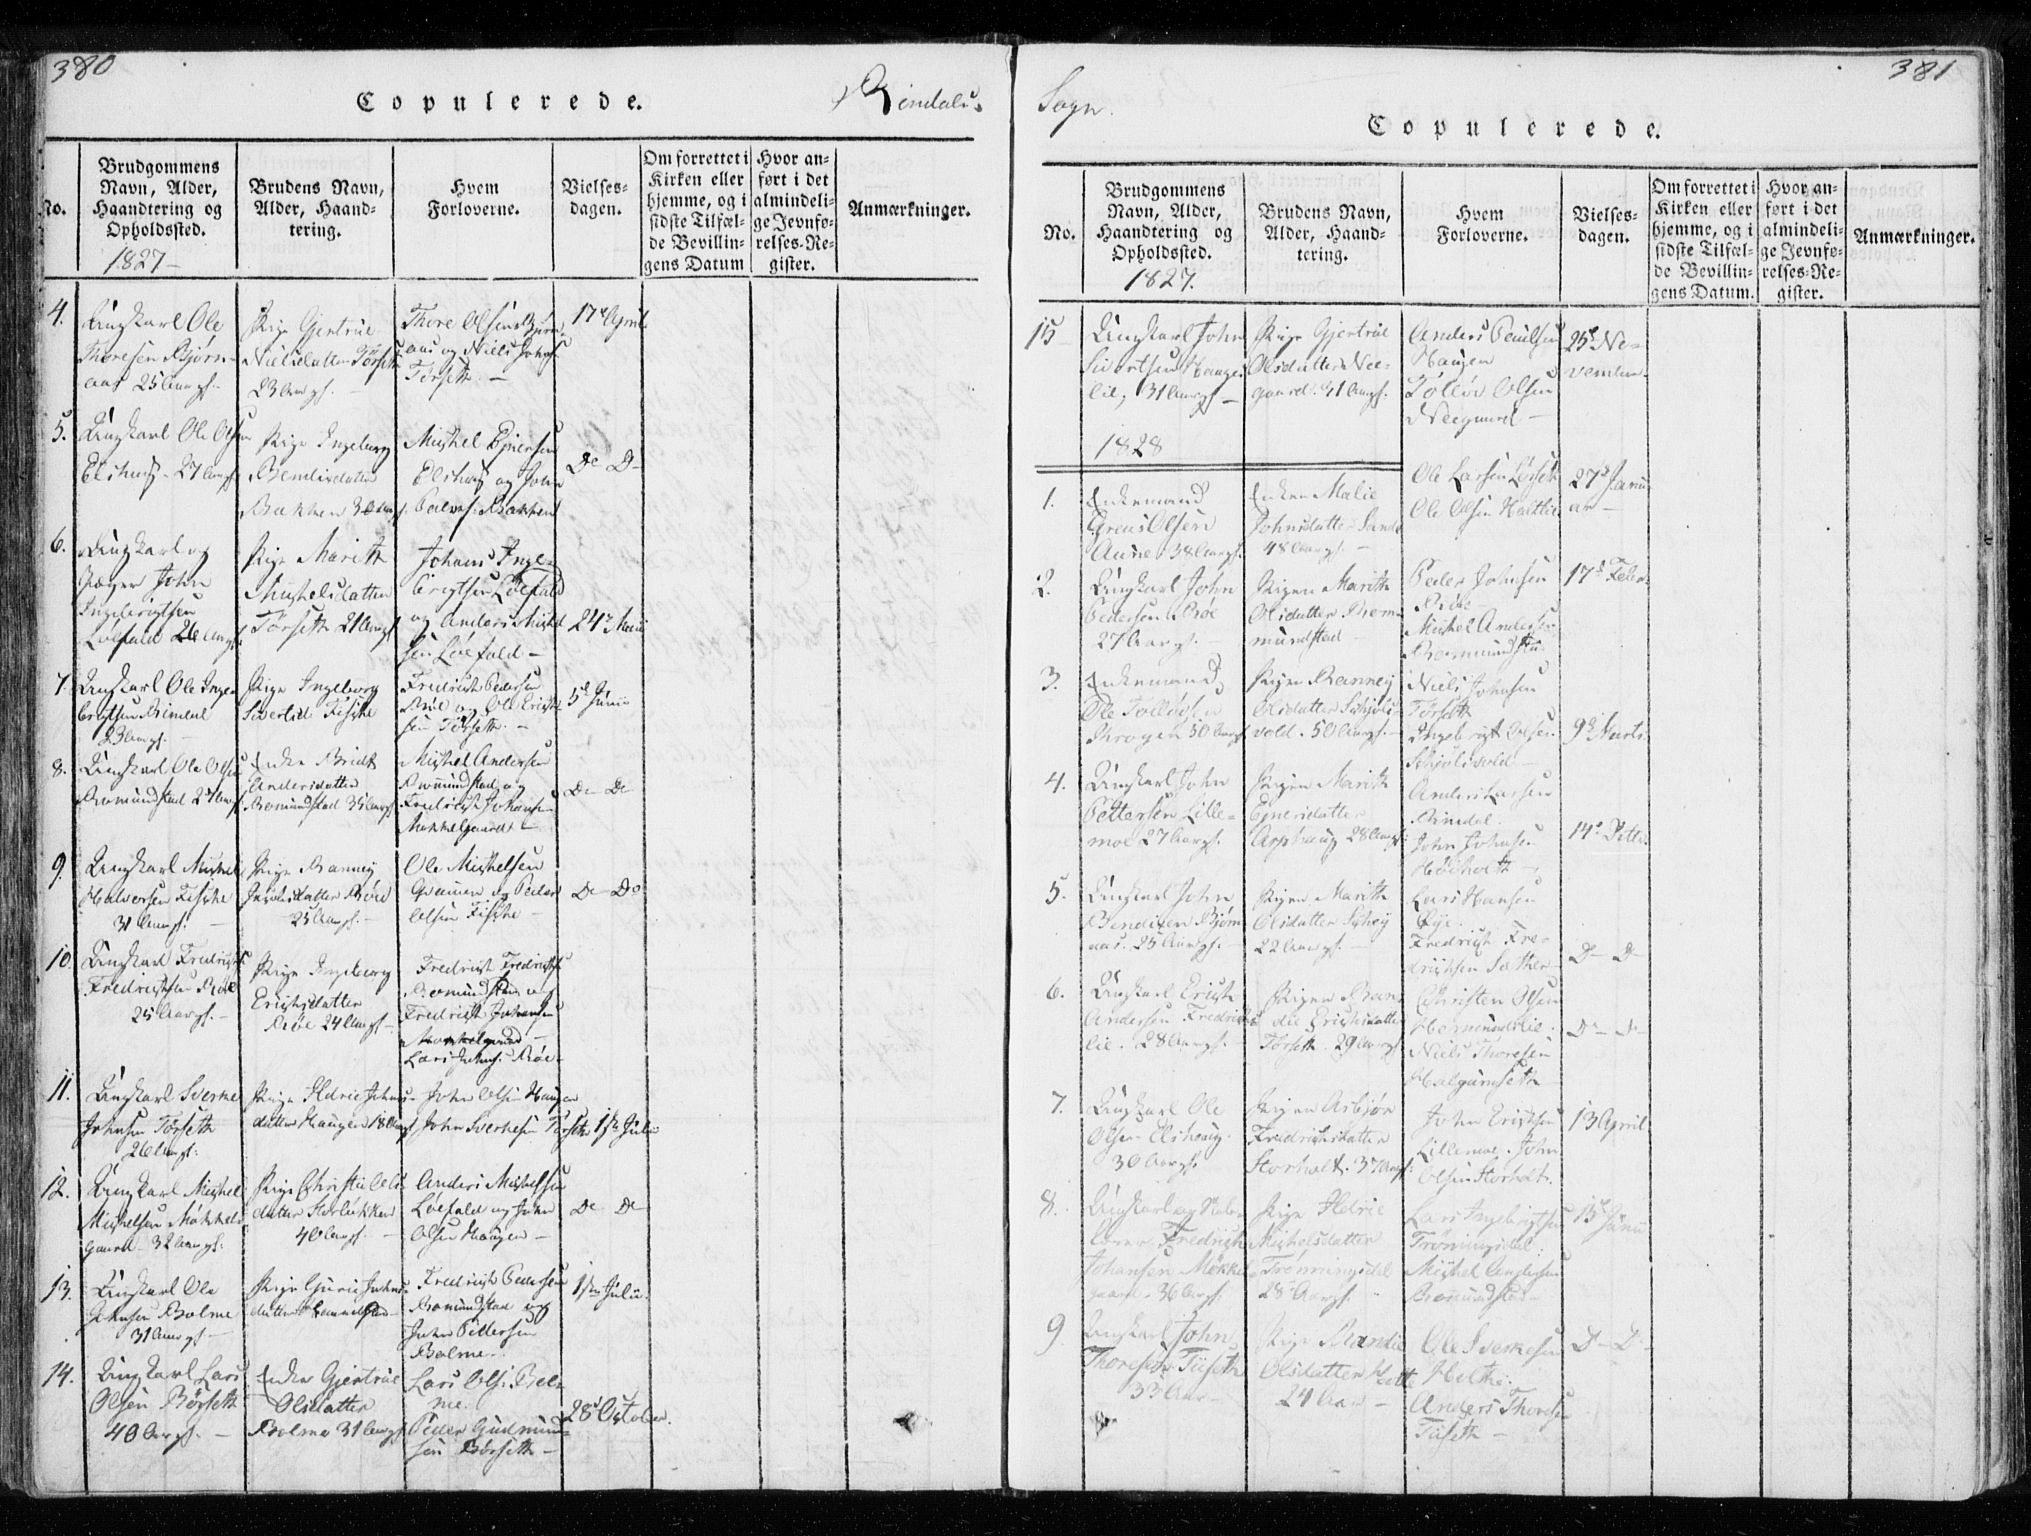 380
Copulerede.
Rindals
No.
Brudgommens
Navn, Alder,
Haandtering og
Opholdssted.
1827
Brudens Navn,
Alder, Haand-
tering.
Hvem
Forloverne.
Vielses-
dagen.
Om forrettet i
Kirken eller
hjemme, og i
sidste Tilfæl-
de Bevillin-
gens Datum
Hvor an-
ført i det
almindeli-
ge Jevnfø-
relses-Re-
gister.
Anmærkninger.
4.
Ungkarl Ole
Thoresen Bjørn-
aas 25 Aargs.
Pige Gjertrue
Nielsdatter Tørseth
23 Aargs.
Thore Olsen Bjørn-
aas og Niels Johns.
Tørseth
17de April
5.
Ungkarl Ole Olsen
Elshaug 27 Aargs.
Pige Ingeborg
Bendixdatter
Bakken 30 Aargs.
Mischel Ejnersen
Elshaug og John
Bakken
De D
6.
Ungkarl og
Jæger John
Ingebrigtsen
Løefald 26 Aargs.
Pige Marith
Mischelsdatter
Tørseth 21 Aargs.
Johans Inge-
brigtsen Løefald
og Anders Mischel
sen Løefald
24de Maii
7.
Ungkarl Ole Inge-
brigtsen Rindal
23 Aargs.
Pige Ingeborg
Sivertsd. Fiske
Fredrich Pedersen
Røe og Ole Erich-
sen Tørseth
5te Junii
8.
Ungkarl Ole Olsen
Romundstad 27 Aargs.
Enke Bridt
Andersdatter
Romundstad 35 Aargs.
Mischel Andersen
Romundstad og
Fredrich Johansen
Møkkelgaard
De De
9.
Ungkarl Mischel
Halversen Fische
31 Aargs.
Pige Ranney
Røe
25 Aargs.
Ole Mischelsen
og Peder
Olsen Fische
De Do
10.
Ungkarl Fredrich
Fredrichsen Røe
25 Aargs.
Pige Ingeborg
Erichsdatter
Røe 24 Aargs.
Fredrich Fredrichs.
Romundstad og
Fredrich Johansen
Møkkelgaard
Lars Johns. Røe
11.
Ungkarl Sverke
Johnsen Tørseth
26 Aargs.
Pige Heldrie Johns-
datter Haugen 18 Aargs.
John Olsen Haugen
John Sverkesen Tørseth
1ste Julii
12.
Ungkarl Mischel
Mischelsen Møkkel-
gaard 32 Aargs.
Pige Christie Ols-
datter Storløkken
40 Aargs.
Anders Mischelsen
Løefald og John
Olsen Haugen
De De
13.
Ungkarl Ole
Johnsen Bolme
31 Aargs.
Pige Guri Johns-
datter
Fredrich Pedersen
Romundstad og
John Pettersen
Bolme
1ste Julii
14.
Ungkarl Lars
Olsen Børseth
40 Aargs.
Enke Gjertrue
Olsdatter
Bolme 31 Aargs.
Lars Ols. Bol-
me.
Peder Gudmund-
sen Børseth
28de October.
381
Sogn.
Copulerede.
No.
Brudgommens
Navn, Alder,
Haandtering og
Opholdssted.
1827.
Brudens Navn,
Alder, Haand-
tering.
Hvem
Forloverne.
Vielses-
dagen.
Om forrettet i
Kirken eller
hjemme, og i
sidste Tilfæl-
de Bevillin-
gens Datum.
Hvor an-
ført i det
almindeli-
ge Jevnfø-
relses-Re-
gister.
Anmærkninger.
15
Ungkarl John
Sivertsen Hauge-
lie, 31 Aargs.
Pige Gjertrue
Olsdatter Nee-
gaard. 31 Aargs.
Anders Paulsen
Haugen
Tølløv Olsen
Neegaard
25de No-
vember
1828
1.
Enkemand
Greus Olsen
Aune. 38 Aargs.
Enken Malie
Johnsdatter Sande
48 Aargs.
Ole Larsen Løseth
Ole Olsen Haltlie
27de Janu-
ar
2.
Ungkarl John
Pedersen Røe
27 Aargs.
Pigen Marith
Olsdatter Rom-
mundstad
Peder Johnsen
Røe
Mischel Andersen
Rommundstad
17de Febr.
3.
Enkemand
Ole Tølløvsen
Krogen 50 Aargs.
Pigen Ranney
Olsdatter Schjøls-
vold. 50 Aargs.
Niels Johnsen
Tørseth
Ingebrigt Olsen
Schjølsvold
9de Marts
4.
Ungkarl John
Pettersen Lille-
moe 27 Aargs.
Pigen Marith
Ejnersdatter
Asphaug 28 Aargs.
Anders Larsen
Rindal.
John Johnsen
Høeholth
14de
5.
Ungkarl John
Bendixen Bjørn-
aas. 25 Aargs.
Pigen Marith
Olsdatter
22 Aargs.
Lars Hansen
Øye.
Fredrich Fre-
drichsen Sæther
D D
6.
Ungkarl Erich
Andersen Fredrichs-
lie. 28 Aargs.
Pigen Ran-
die Erichsdatter
Tørseth. 29 Aargs.
Christen Olsen
Hermundslie.
Niels Thoresen
Halgunseth
D D
7.
Ungkarl Ole
Olsen Elshaug.
30 Aargs.
Pigen Asbjør
Fredrichsdatter
Storholt. 37 Aargs.
John Erichsen
Lillemoe. John
Olsen Storholt.
13 April
8.
Ungkarl og
Fredrich
Johansen Møkkel-
gaard. 36 Aargs.
Pige Heldrie
Mischelsdatter
Trønningsdal
28 Aargs.
Lars Ingebrigtsen
Trønningsdal.
Mischel Andersen
Romundstad
15de Junii
9
Ungkarl John
Thoresen Tiiseth
33 Aar
Pige Randie
Olsdatter
24 Aar
Ole Sverkesen
Helthe.
Anders Thoresen
Tiiseth
D D